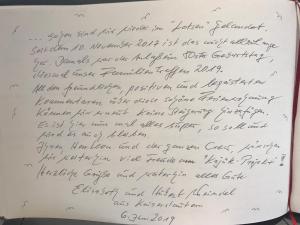 .... schon sind wir wieder im "Lotsen" gelandet.
Seit dem 10. November 2017 ist das nicht allzu lange
her. Damals war der Anlaß ein Geburtstag,
diesmal unser Familientreffen 2019.
All den freundlichen, positiven und begeisterten
Kommentaren über diese schöne Ferienwohnung
können wir nur keine Steigerung hinzufügen.
Es ist hier nun mal alles super, so soll und
wird es auch bleiben.
Ihnen und der ganzen Crew, wünschen
wir weiterhin viel Freude am "Kajük-Projekt"!
Herzliche Grüße und weiterhin alles Gute
Elisabeth und Hubert
aus Kaiserslautern
6. Jan 2019